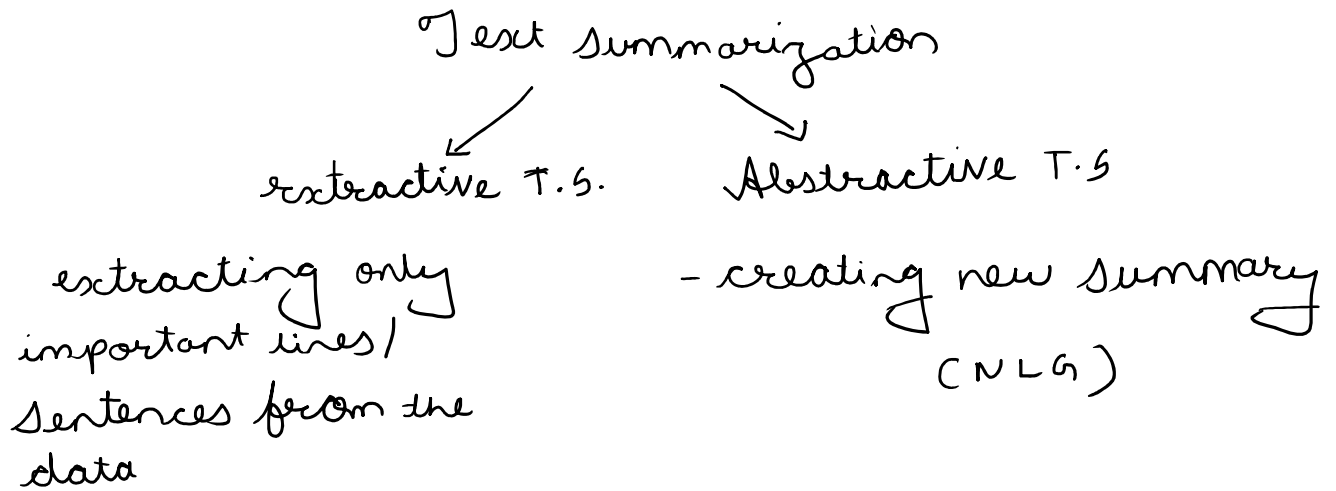 Text summarization
extractive T.S.
Abstractive T.S
extracting only
important lines/
sentences from the
data
- creating new summary
(NLG)